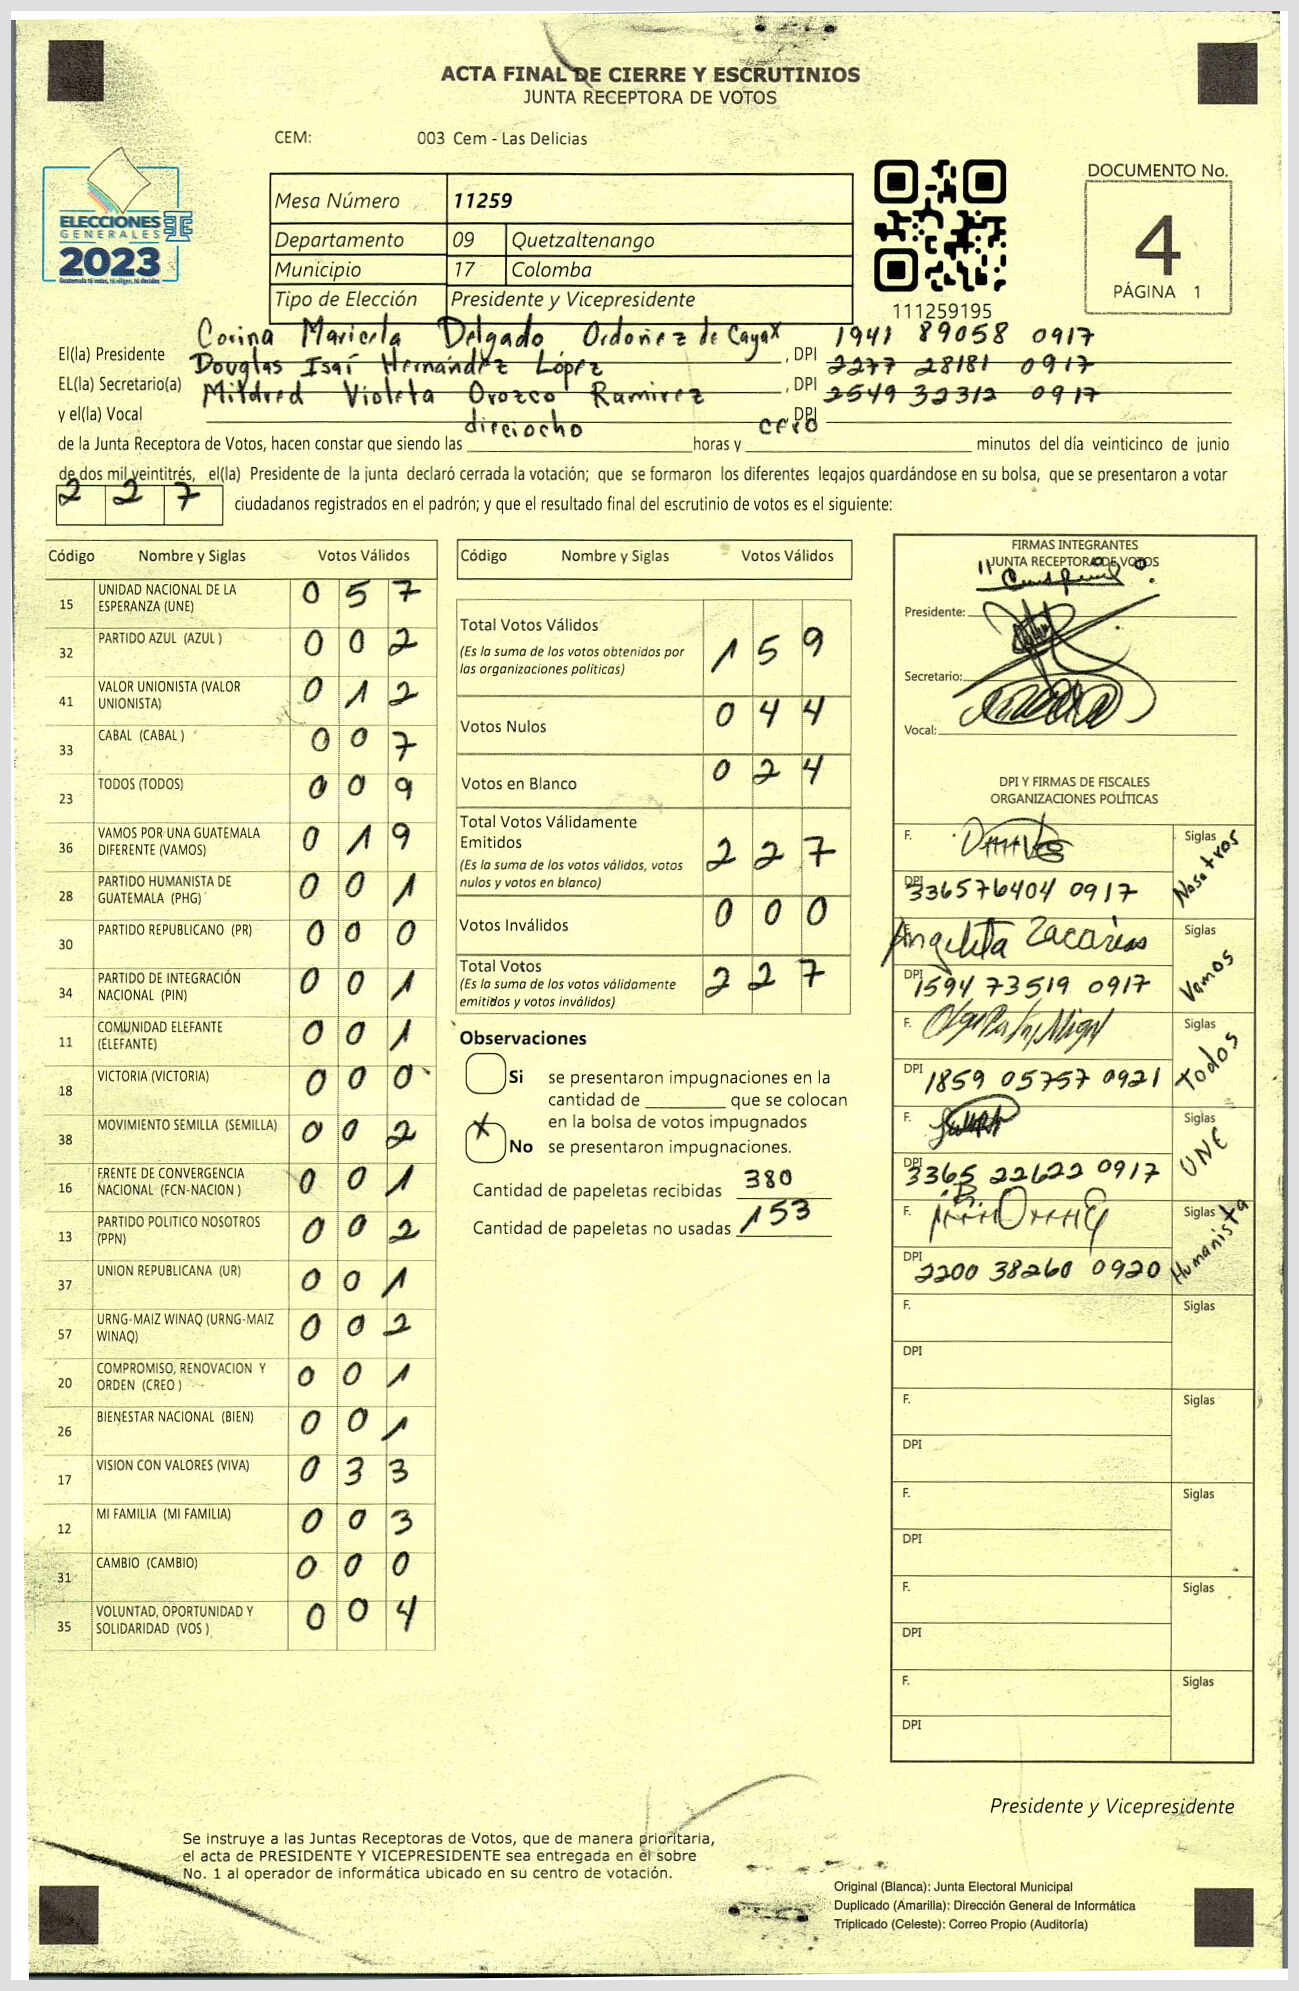 ACTA FINAL DE CIERRE Y ESCRUTINIOS
JUNTA RECEPTORA DE VOTOS
CEM: 003 Cem - Las Delicias
ELECCIONES
GENERALES
2023
Guatemala tú votas, tú eliges, tú decides
Mesa Número 11259
Departamento 09 Quetzaltenango
Municipio 17 Colomba
Tipo de Elección Presidente y Vicepresidente
111259195
DOCUMENTO No.
4
PÁGINA 1
El(la) Presidente Corina Maricela Delgado Ordoñez de Cayax, DPI 1941 89058 0917
EL(la) Secretario(a) Douglas Isaí Hernández López, DPI 2277 28181 0917
y el(la) Vocal Mildred Violeta Orozco Ramirez, DPI 2549 32312 0917
de la Junta Receptora de Votos, hacen constar que siendo las dieciocho horas y cero minutos del día veinticinco de junio
de dos mil veintitrés, el(la) Presidente de la junta declaró cerrada la votación; que se formaron los diferentes legajos guardándose en su bolsa, que se presentaron a votar
2 2 7 ciudadanos registrados en el padrón; y que el resultado final del escrutinio de votos es el siguiente:
Código Nombre y Siglas Votos Válidos
15 UNIDAD NACIONAL DE LA ESPERANZA (UNE) 0 5 7
32 PARTIDO AZUL (AZUL ) 0 0 2
41 VALOR UNIONISTA (VALOR UNIONISTA) 0 1 2
33 CABAL (CABAL ) 0 0 7
23 TODOS (TODOS) 0 0 9
36 VAMOS POR UNA GUATEMALA DIFERENTE (VAMOS) 0 1 9
28 PARTIDO HUMANISTA DE GUATEMALA (PHG) 0 0 1
30 PARTIDO REPUBLICANO (PR) 0 0 0
34 PARTIDO DE INTEGRACIÓN NACIONAL (PIN) 0 0 1
11 COMUNIDAD ELEFANTE (ELEFANTE) 0 0 1
18 VICTORIA (VICTORIA) 0 0 0
38 MOVIMIENTO SEMILLA (SEMILLA) 0 0 2
16 FRENTE DE CONVERGENCIA NACIONAL (FCN-NACION ) 0 0 1
13 PARTIDO POLITICO NOSOTROS (PPN) 0 0 2
37 UNION REPUBLICANA (UR) 0 0 1
57 URNG-MAIZ WINAQ (URNG-MAIZ WINAQ) 0 0 2
20 COMPROMISO, RENOVACION Y ORDEN (CREO ) 0 0 1
26 BIENESTAR NACIONAL (BIEN) 0 0 1
17 VISION CON VALORES (VIVA) 0 3 3
12 MI FAMILIA (MI FAMILIA) 0 0 3
31 CAMBIO (CAMBIO) 0 0 0
35 VOLUNTAD, OPORTUNIDAD Y SOLIDARIDAD (VOS ) 0 0 4
Código Nombre y Siglas Votos Válidos
Total Votos Válidos 1 5 9
(Es la suma de los votos obtenidos por
las organizaciones políticas)
Votos Nulos 0 4 4
Votos en Blanco 0 2 4
Total Votos Válidamente
Emitidos 2 2 7
(Es la suma de los votos válidos, votos
nulos y votos en blanco)
Votos Inválidos 0 0 0
Total Votos 2 2 7
(Es la suma de los votos válidamente
emitidos y votos inválidos)
Observaciones
Si se presentaron impugnaciones en la
cantidad de ________ que se colocan
en la bolsa de votos impugnados
X No se presentaron impugnaciones.
Cantidad de papeletas recibidas 380
Cantidad de papeletas no usadas 153
FIRMAS INTEGRANTES
JUNTA RECEPTORA DE VOTOS
Presidente:
Secretario:
Vocal:
DPI Y FIRMAS DE FISCALES
ORGANIZACIONES POLÍTICAS
F. Siglas Nosotros
DPI 336576404 0917
F. Angelita Zacarias Siglas Vamos
DPI 1594 73519 0917
F. Siglas Todos
DPI 1859 05757 0921
F. Siglas UNE
DPI 3365 22622 0917
F. Siglas Humanista
DPI 2200 38260 0920
F. Siglas
DPI
F. Siglas
DPI
F. Siglas
DPI
F. Siglas
DPI
F. Siglas
DPI
Presidente y Vicepresidente
Se instruye a las Juntas Receptoras de Votos, que de manera prioritaria,
el acta de PRESIDENTE Y VICEPRESIDENTE sea entregada en el sobre
No. 1 al operador de informática ubicado en su centro de votación.
Original (Blanca): Junta Electoral Municipal
Duplicado (Amarilla): Dirección General de Informática
Triplicado (Celeste): Correo Propio (Auditoría)